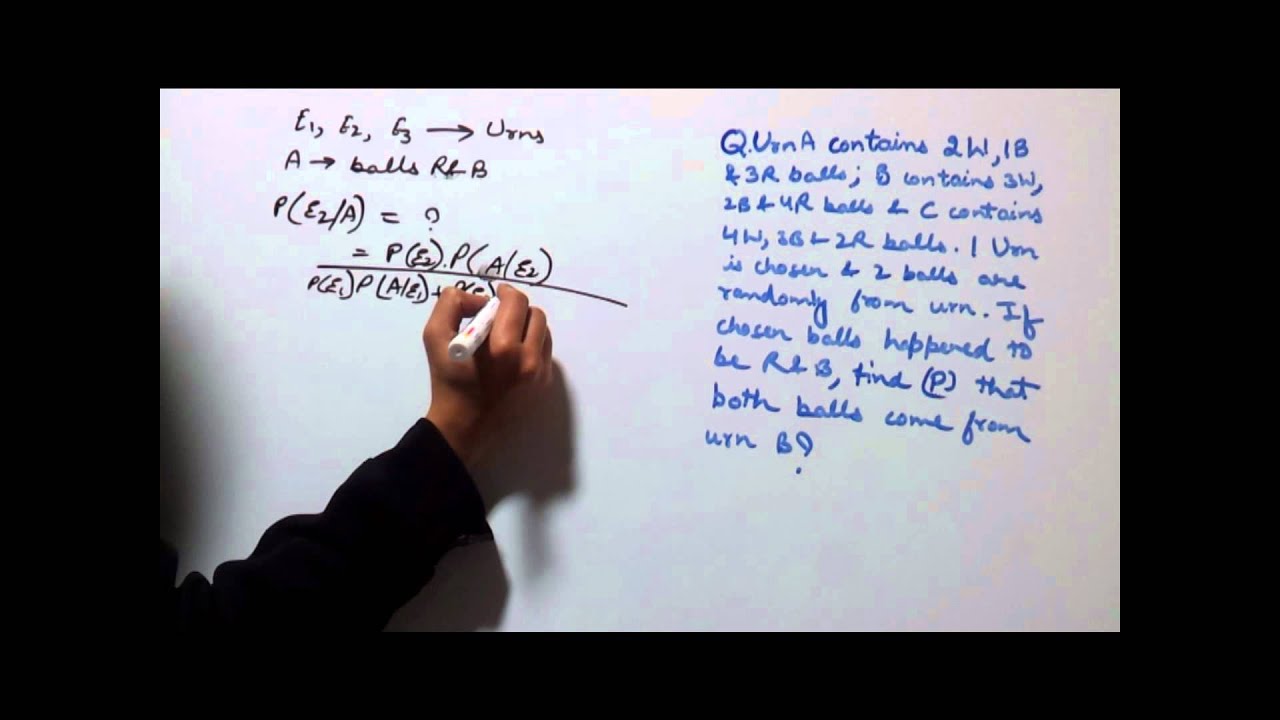 E1, E2, E3 → Urns
A → balls R & B
P(E2/A) = ?
= P(E2).P(A|E2)
P(E1)P(A|E1)+
Q. Urn A contains 2W, 1B
& 3R balls; B contains 3W,
2B & 4R balls & C contains
4W, 3B & 2R balls. 1 Urn
is chosen & 2 balls are
randomly from urn. If
chosen balls happened to
be R & B, find (P) that
both balls come from
urn B?